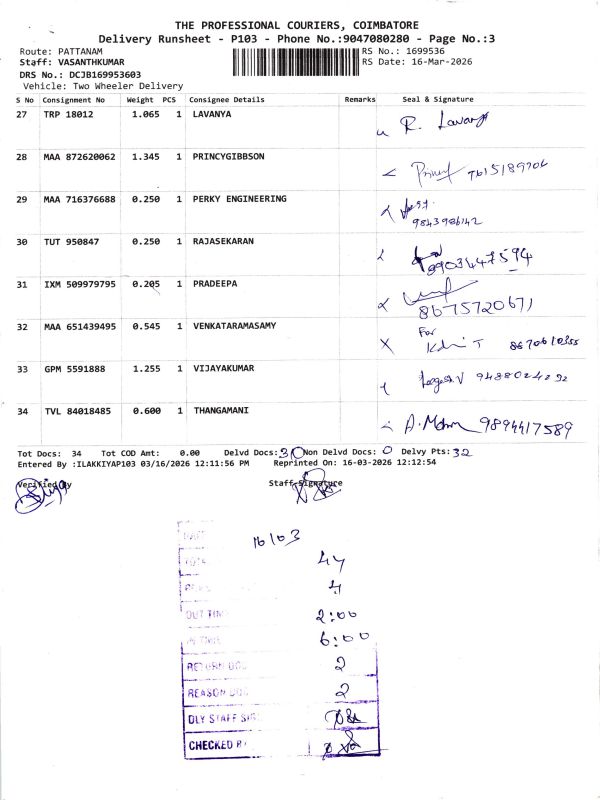 THE PROFESSIONAL COURIERS, COIMBATORE
Delivery Runsheet - P103 - Phone No.:9047080280 - Page No.:3
Route: PATTANAM RS No.: 1699536
Staff: VASANTHKUMAR RS Date: 16-Mar-2026
DRS No.: DCJB169953603
Vehicle: Two Wheeler Delivery
S No Consignment No Weight PCS Consignee Details Remarks Seal & Signature
27 TRP 18012 1.065 1 LAVANYA R. Lavanya
28 MAA 872620062 1.345 1 PRINCYGIBBSON
29 MAA 716376688 0.250 1 PERKY ENGINEERING
9843986142
30 TUT 950847 0.250 1 RAJASEKARAN
9903447594
31 IXM 509979795 0.205 1 PRADEEPA
8675720671
32 MAA 651439495 0.545 1 VENKATARAMASAMY For
33 GPM 5591888 1.255 1 VIJAYAKUMAR
34 TVL 84018485 0.600 1 THANGAMANI 9894417589
Tot Docs: 34 Tot COD Amt: 0.00 Delvd Docs: Non Delvd Docs: 0 Delvy Pts: 32
Entered By :ILAKKIYAP103 03/16/2026 12:11:56 PM Reprinted On: 16-03-2026 12:12:54
Verified By Staff Signature
16/03
44
4
OUT TIM 2:00
6:00
RETURN DOC 2
REASON DOC 2
DLY STAFF SIG
CHECKED B